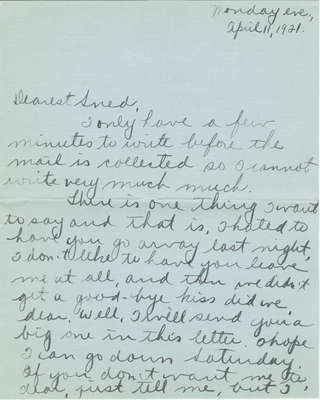 Monday eve,
April 11, 1921.
Dearest Sned,
I only have a few
minutes to write before the
mail is collected so I cannot
write very much much.
There is one thing I want
to say and that is, I hated to
have you go away last night,
I don't like to have you leave
me at all, and then we didn't
get a good-bye kiss did we,
dear. Well, I will send you a
big one in this letter. I hope
I can go down Saturday.
If you don't want me to
dear, just tell me, but I